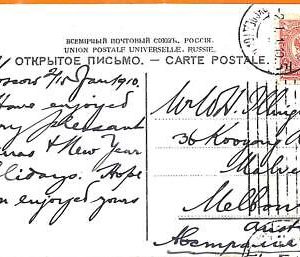 ВСЕМІРНЫЙ ПОЧТОВЫЙ СОЮЗЪ. РОССІЯ.
UNION POSTALE UNIVERSELLE. RUSSIE.
ОТКРЫТОЕ ПИСЬМО. — CARTE POSTALE.
oscow 2/15 Jan 1910.
Have enjoyed
ry pleasant
mas & New Year
olidays. Hope
en enjoyed yours
36 Kooyong
Malve
Melbou
aust
Австралія